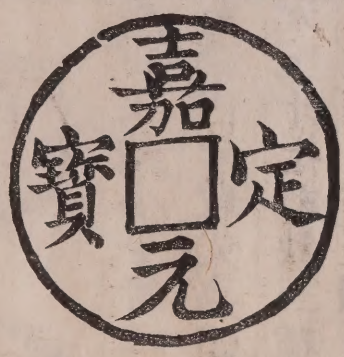 嘉定元寶